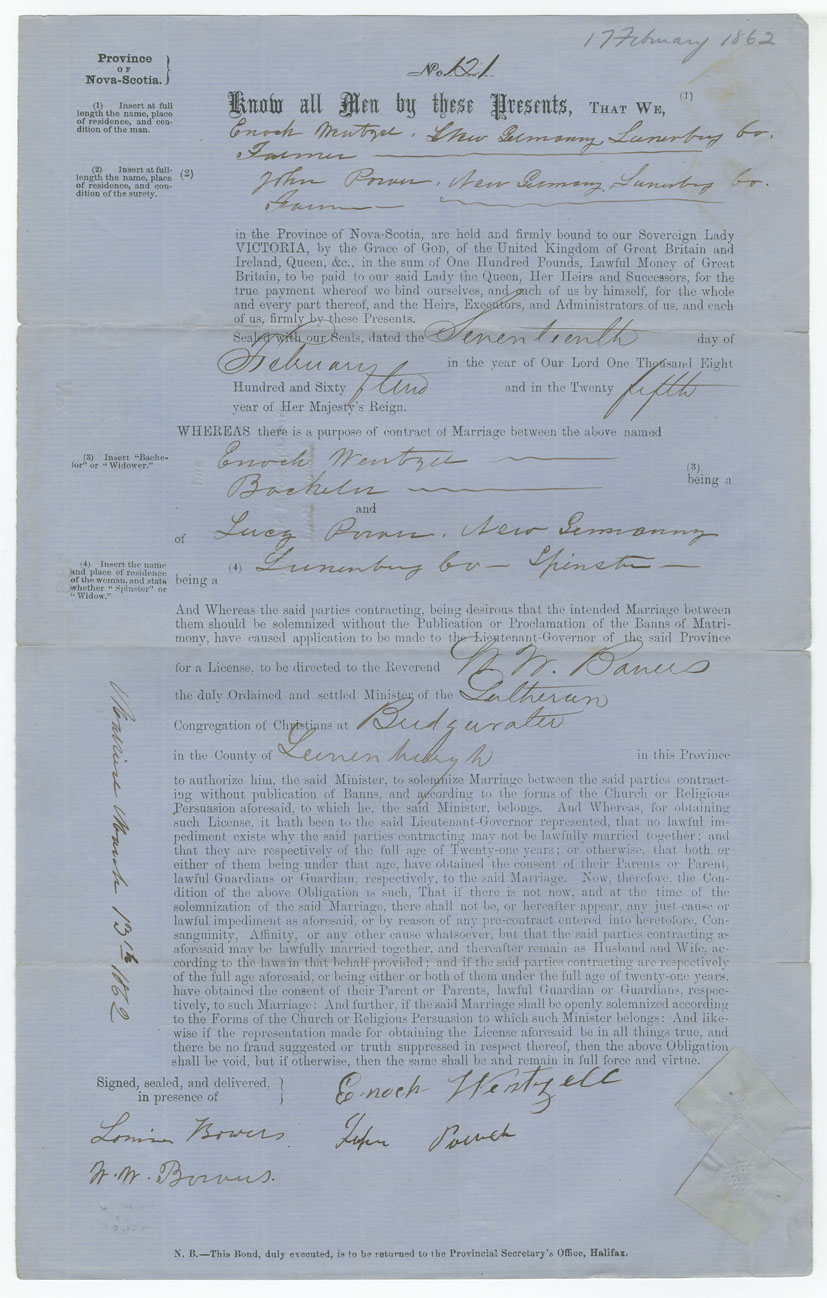 17 February 1862
Province
OF
Nova-Scotia.
No. 121
Know all Men by these Presents, THAT WE, (1)
(1) Insert at full
length the name, place
of residence, and con-
dition of the man.
Enoch Wentzel. New Germany, Lunenburg Co.
Farmer
(2) Insert at full-
length the name, place
of residence, and con-
dition of the surety.
(2)
John Power. New Germany, Lunenburg Co.
Farmer
in the Province of Nova-Scotia, are held and firmly bound to our Sovereign Lady
VICTORIA, by the Grace of GOD, of the United Kingdom of Great Britain and
Ireland, Queen, &c., in the sum of One Hundred Pounds, Lawful Money of Great
Britain, to be paid to our said Lady the Queen, Her Heirs and Successors, for the
true payment whereof we bind ourselves, and each of us by himself, for the whole
and every part thereof, and the Heirs, Executors, and Administrators of us, and each
of us, firmly by these Presents.
Sealed with our Seals, dated the Seventeenth day of
February in the year of Our Lord One Thousand Eight
Hundred and Sixty two and in the Twenty fifth
year of Her Majesty's Reign.
WHEREAS there is a purpose of contract of Marriage between the above named
(3) Insert "Bache-
lor" or "Widower."
Enoch Wentzel
(3)
being a
Bachelor
and
of Lucy Power. New Germanny
(4) Insert the name
and place of residence
of the woman, and state
whether "Spinster" or
"Widow."
(4) Lunenburg Co - Spinster -
being a
And Whereas the said parties contracting, being desirous that the intended Marriage between
them should be solemnized without the Publication or Proclamation of the Banns of Matri-
mony, have caused application to be made to the Lieutenant-Governor of the said Province
for a License, to be directed to the Reverend W. W. Bowers
the duly Ordained and settled Minister of the Lutheran
Congregation of Christians at Bridgewater
in the County of Lunenburgh in this Province
to authorize him, the said Minister, to solemnize Marriage between the said parties contract-
ing without publication of Banns, and according to the forms of the Church or Religious
Persuasion aforesaid, to which he, the said Minister, belongs. And Whereas, for obtaining
such License, it hath been to the said Lieutenant-Governor represented, that no lawful im-
pediment exists why the said parties contracting may not be lawfully married together; and
that they are respectively of the full age of Twenty-one years; or otherwise, that both or
either of them being under that age, have obtained the consent of their Parents or Parent,
lawful Guardians or Guardian, respectively, to the said Marriage. Now, therefore, the Con-
dition of the above Obligation is such, That if there is not now, and at the time of the
solemnization of the said Marriage, there shall not be, or hereafter appear, any just cause or
lawful impediment as aforesaid, or by reason of any pre-contract entered into heretofore, Con-
sanguinity, Affinity, or any other cause whatsoever, but that the said parties contracting as
aforesaid may be lawfully married together, and thereafter remain as Husband and Wife, ac-
cording to the laws in that behalf provided; and if the said parties contracting are respectively
of the full age aforesaid, or being either or both of them under the full age of twenty-one years,
have obtained the consent of their Parent or Parents, lawful Guardian or Guardians, respec-
tively, to such Marriage: And further, if the said Marriage shall be openly solemnized according
to the Forms of the Church or Religious Persuasion to which such Minister belongs: And like-
wise if the representation made for obtaining the License aforesaid be in all things true, and
there be no fraud suggested or truth suppressed in respect thereof, then the above Obligation
shall be void, but if otherwise, then the same shall be and remain in full force and virtue.
Married March 13th 1862
Signed, sealed, and delivered,
in presence of
Enoch Wentzell
Louisa Bowers
John Power
W. W. Bowers.
N. B.—This Bond, duly executed, is to be returned to the Provincial Secretary's Office, Halifax.